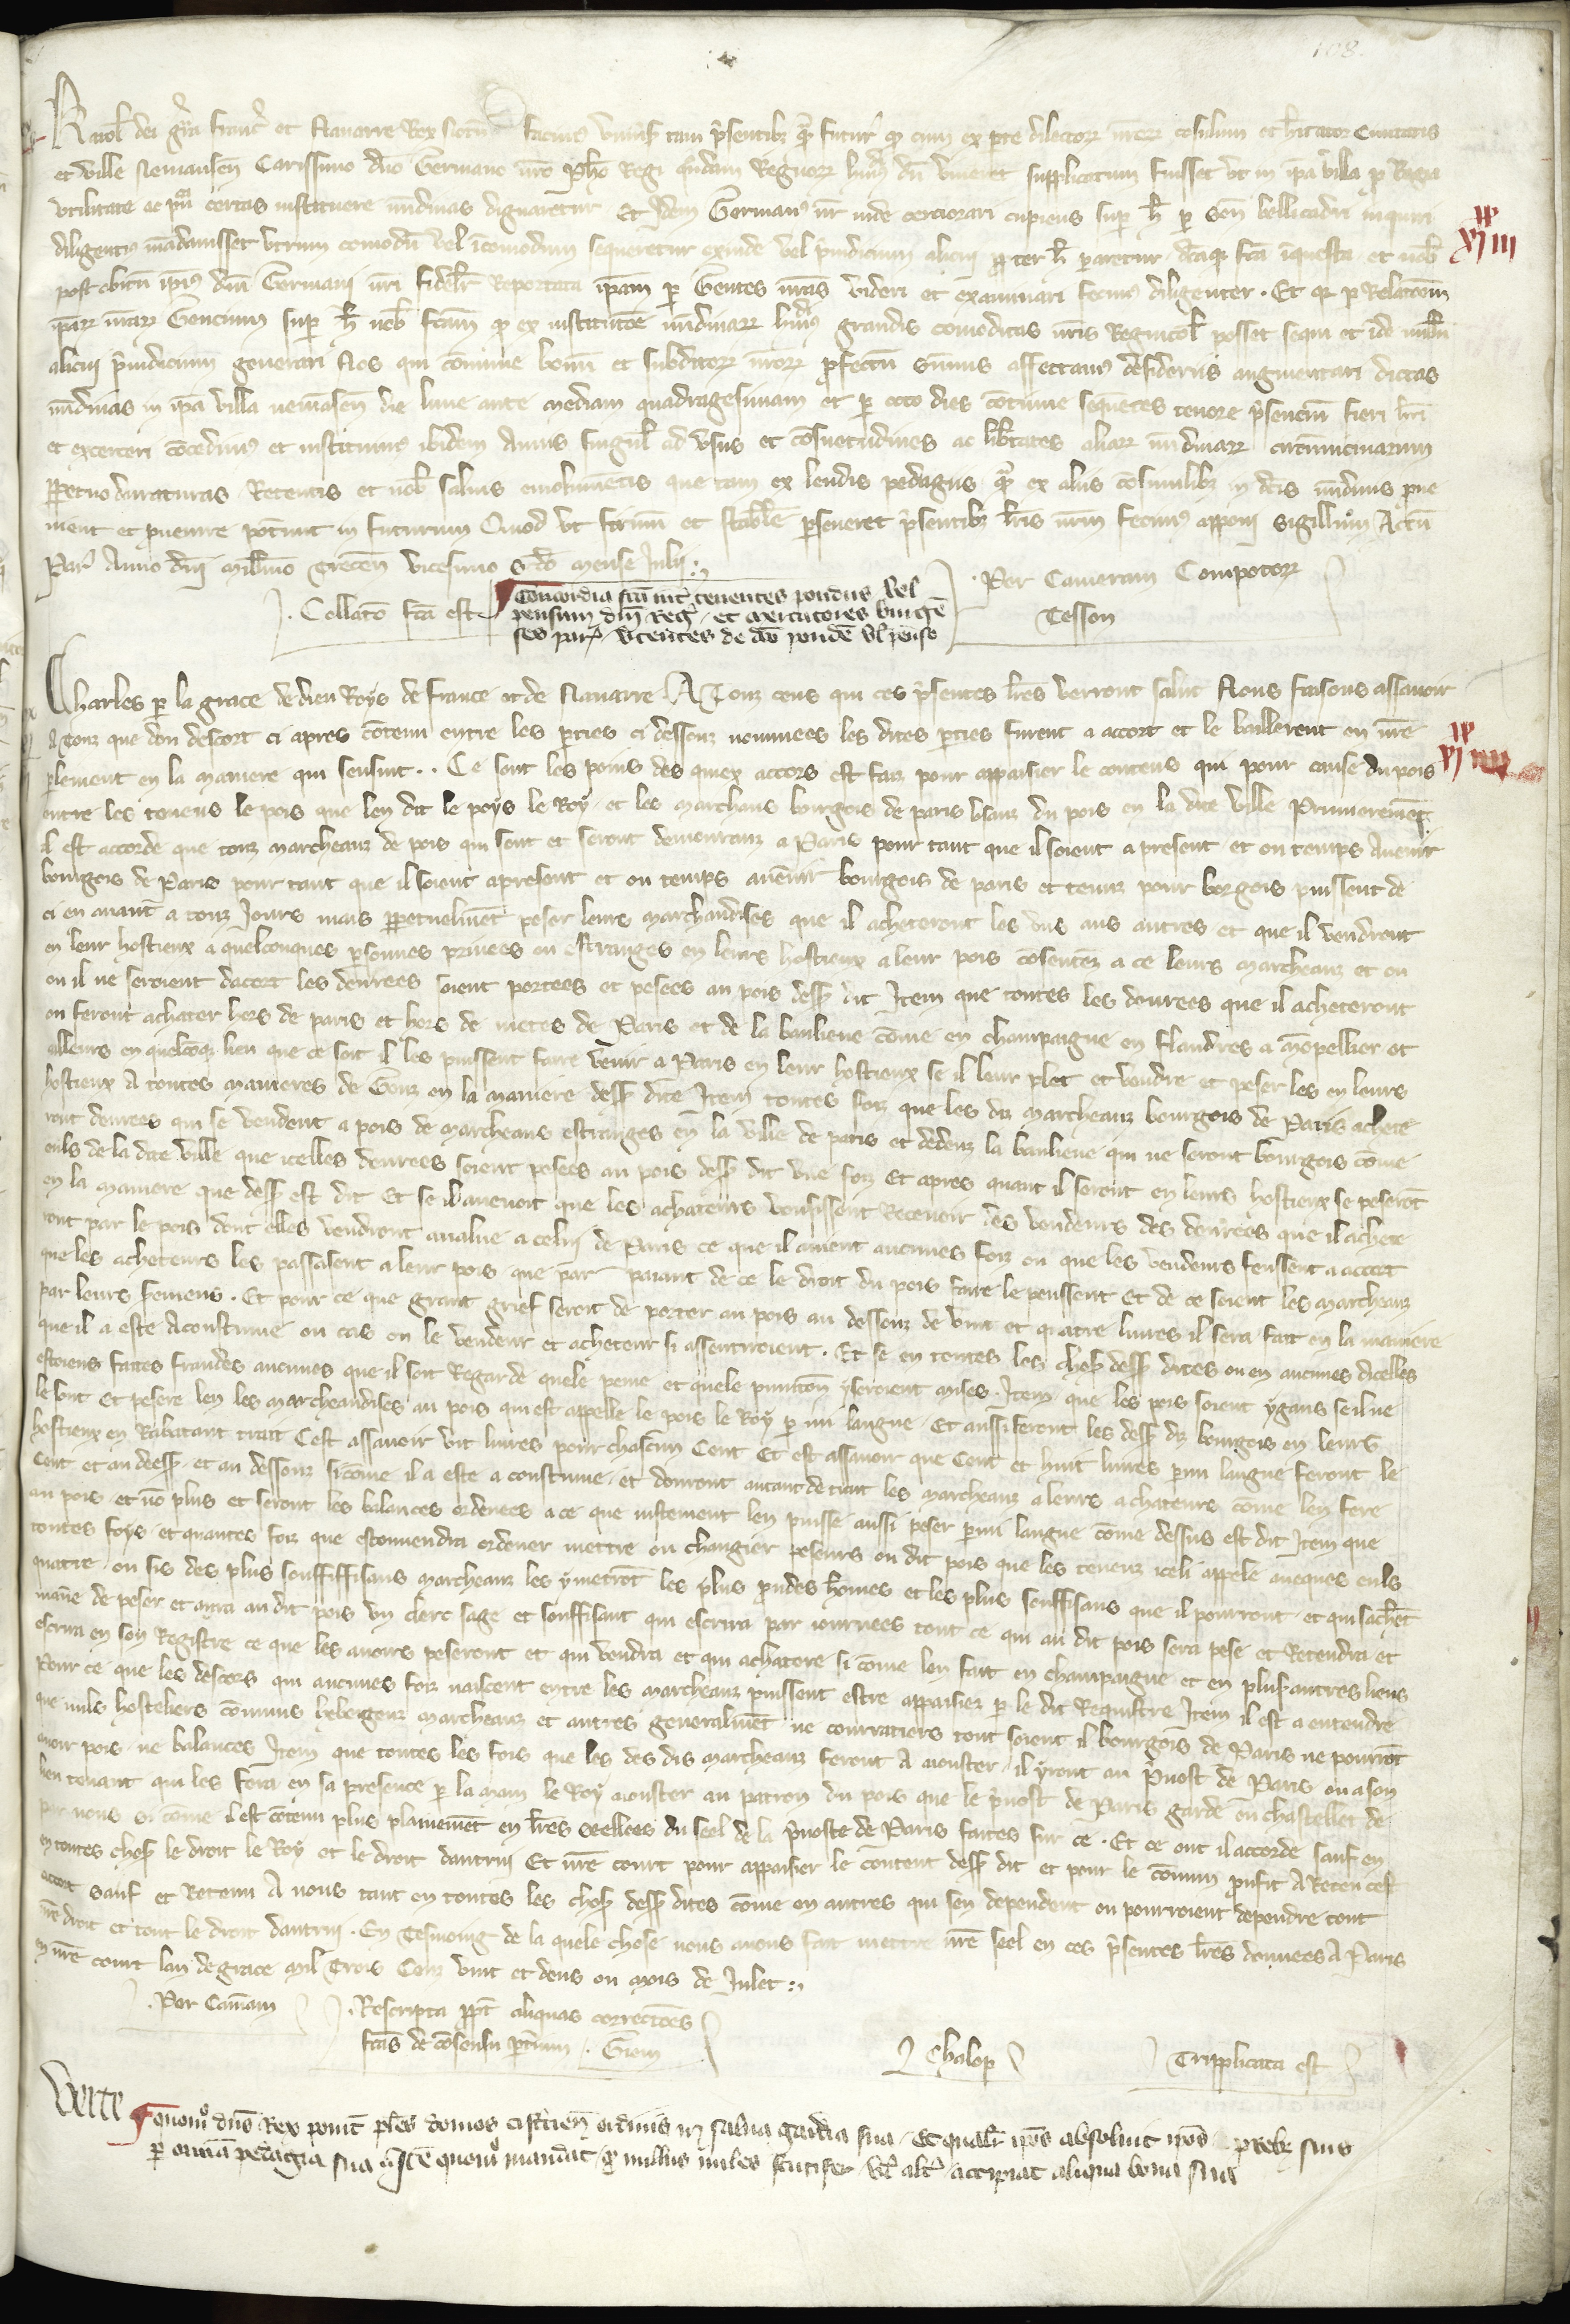 108.
Karol dei gra Franc et Navarre Rex Notum facimus universis tam presentibz quam futur qd cum ex pte dilectorum nrorum consulum et habitator Civitatis
et ville Nemausen Carissimo dno Germano nro Pho Regi quondam Regnorum hujus dum viveret supplicatum fuisset ut in ipa villa p Regia
utilitate ac certas instituere nundinas dignaretur Et Idem Germanus nr inde cerciorari cupiens sup h per Sen bellicadri inquiri
diligentius mandavisset utrum comodum vel incomodum sequeretur exinde vel prejudicium alicui propter h pararetur dcaque fca inquesta et nob
post obitum ipius dni Germani nri fideliter Reportata ipam per Gentes nras videri et examinari fecimus diligenter . Et qr per Relacoem
iparum nrarum Gencium sup h nob fcam qd ex institucoe nundinarum hujus grandis comoditas nris Regnicol posset sequi et inde nullum
alicui prejudicium generari Nos qui comune bonum et subditorum nrorum profectum summis affectamus desideriis augmentari dictas
nundinas in ipa villa nemausen die lune ante mediam quadragesimam et per octo dies continue sequentes tenore presencium fieri
et exerceri concedimus et instituimus ibidem Annis singul ad usus et consuetudines ac libertates aliarum nundinarum circumvicinarum
perpetuo duraturas Retentis et nob salvis emolumentis que tam ex lendis pedagiis quam ex aliis consimilibz in dcis nundinis prove
niunt et provenire poterunt in futurum Quod ut firmum et stabile perseveret presentibz lris nrum fecimus apponi sigillum Actum
Par Anno dni millmo trecen vicesimo scdo mense Julii
Per Cameram Compotorum
Collatio fca est
Tesson
Concordia fca inter tenentes pondus vel
pensum dni Reg et mercatores burgen
ses par utentes de dco pondere vel penso
Charles per la grace de dieu Roys de france et de Navarre A Touz ceus qui ces presentes lres verront salut Nous faisons assavoir
A touz que dou descort ci apres contenu entre les parties ci dessouz nommees les dites parties furent a accort et le baillerent en nre
plement en la maniere qui sensuit . . Ce sont les poins des quiex accors est faiz pour appaisier le contens qui pour cause du pois
entre les tenens le pois que len dit le poys le Roy et les marchans bourgois de paris usanz du pois en la dite ville Premierement
il est accorde que touz marcheanz de pois qui sont et seront demouranz a Paris pour tant que il soient a present et ou temps Avenir
bourgois de Paris pour tant que il soient apresent et ou temps avenir bourgois de paris et tenuz pour borgois puissent de
ci en avant a touz Jours mais perpetuelment peser leurs marchandises que il acheteront les uns aus autres et que il vendront
en leur hostieux a quelconques personnes privees ou estranges en leurs hostieux a leur pois consentenz a ce leurs marcheanz et ou
ou il ne seroient dacort les denrees soient portees et pesees au pois dess dit Item que toutes les denrees que il acheteront
ou feront achater hors de paris et hors de metes de Paris et de la banlieue comme en champaigne en Flandres a monpellier et
ailleurs en quelconq lieu que ce soit il les puissent faire venir a Paris en leur hostieux se il leur plet et vendre et peser les en leurs
hostieux A toutes manieres de Genz en la maniere dess dite Item toutes foiz que les diz marcheanz bourgois de Paris achete
ront denrees qui se vendent a pois de marcheans estranges en la ville de paris et dedenz la banlieue qui ne seront bourgois comme
euls de la dite ville que icelles denrees soient pesees au pois dess dit une foiz Et apres quant il seront en leurs hostieux se peseront
en la maniere que dess est dit Et se il avenoit que les achateurs vousissent Recevoir des vendeurs des denrees que il achete
ront par le pois dont elles vendront avalue a celui de Paris ce que il avient aucunes foiz ou que les vendeurs feussent a accort
que les acheteurs les passassent a leur pois que par paiant de ce le droit du pois faire le peussent et de ce soient les marcheanz
par leurs seremens . Et pour ce que grant grief seroit de porter au pois au dessouz de vint et quatre livres il sera fait en la maniere
que il a este Acoustume ou cas ou le vendeur et acheteur si assentiroient . Et se en toutes les choses dess dites ou en aucunes dicelles
estoient faites fraudes aucunes que il soit Regarde quele peine et quele punicon y seroient mises . Item que les pois soient ygaus se il ne
le sont Et pesere len les marcheandises au pois qui est appelle le pois le Roy par mi langue Et aussi feront les dess diz bourgois en leurs
hostieux en Rabatant trait Cest assavoir vit livres pour chascun Cent Et est assavoir que Cent et huit livres parmi langue feront le
Cent et au dess et au dessouz si comme il a este a coustume et donront autant de trait les marcheanz a leurs achateurs comme len fere
au pois et non plus et seront les balances ordenees a ce que justement len puisse aussi peser parmi langue comme dessus est dit Item que
toutes foys et quantes foiz que estouvendra ordener mettre ou changier peseurs ou dit pois que les tenenz iceli appele avecques euls
quatre ou sis des plus souffissans marcheanz les y metront les plus preudes hommes et les plus souffisans que il pourront et qui sachent
maniere de peser et aura au dit pois un clerc sage et souffisant qui escrira par journees tout ce qui au dit pois sera pese et Retendra et
escrira en son Registre ce que les avoirs peseront et qui vendra et qui achatere si comme len fait en champaigne et en plus autres lieus
Pour ce que les descors qui aucunes foiz naiscent entre les marcheanz puissent estre appaisiez par le dit Requistre Item il est a entendre
que nuls hosteliers communs hebergenz marcheanz et autres generalment ne couratiers tout soient il bourgois de Paris ne pourront
avoir pois ne balances Item que toutes les fois que les des dis marcheanz feront A aiouster il yront au Prevost de Paris ou a son
lieu tenant qui les fera en sa presence par la main le Roy aiouster au patron du pois que le prevost de Paris garde ou chastellet de
par nous si comme il est contenu plus plainement en lres seellees du seel de la prevoste de Paris faites sur ce . Et ce ont il accorde sauf en
en toutes choses le droit le Roy et le droit dautrui Et nre court pour appaisier le content dess dit et pour le commun profit A Receu cest
accort sauf et Retenu A nous tant en toutes les choses dess dites comme en autres qui sen dependent ou pourroient dependre tout
nre droit et tout le droit dautrui . En Tesmoing de la quele chose nous avons fait mettre nre seel en ces presentes lres donnees A Paris
en nre court lan de grace mil Trois Cenz vint et deus ou mois de Julet
Per Camam
Rescripta ppt aliquas correctoes
fcas de consensu partium . Giem
Chalop
Tripplicata est
Verte
quomo dns Rex ponit ples domos cistercien ordinis in salva gardia sua . Et qualr ipos absolvit p rebz suis
per omnia pedagia sua Item quomo mandat qd nullus miles scutifer vel alter accipiat aliqua bona sua